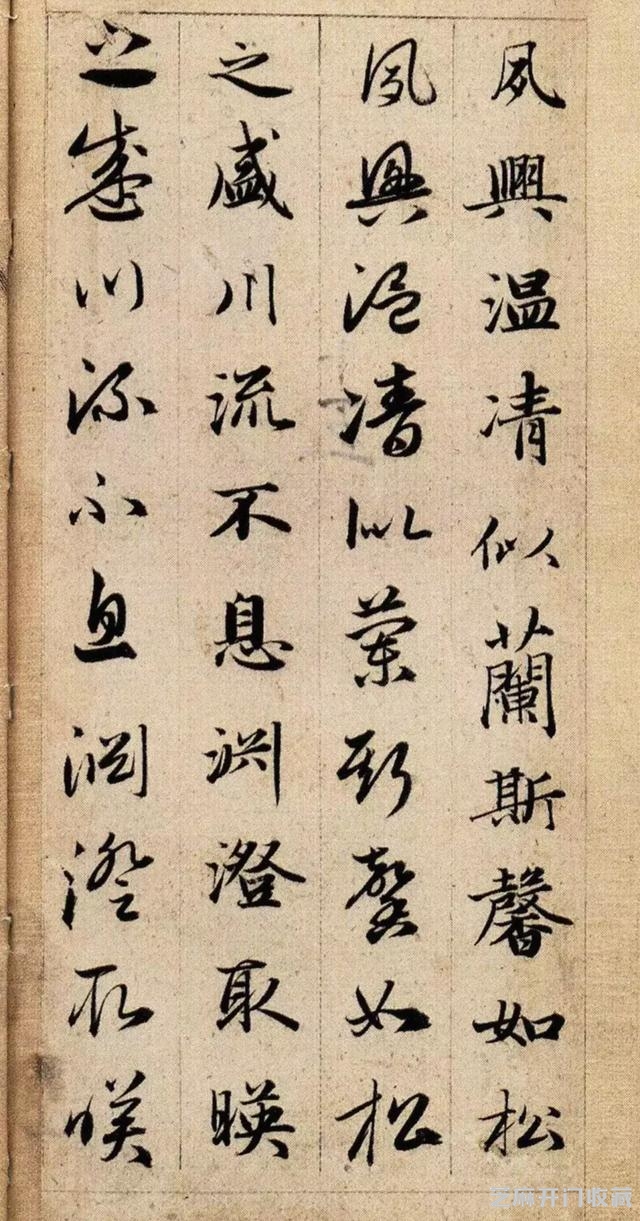 夙興温凊似蘭斯馨如松
夙興温凊似蘭斯馨如松
之盛川流不息淵澄取暎
之盛川流不息淵澄取暎
麻开门收藏